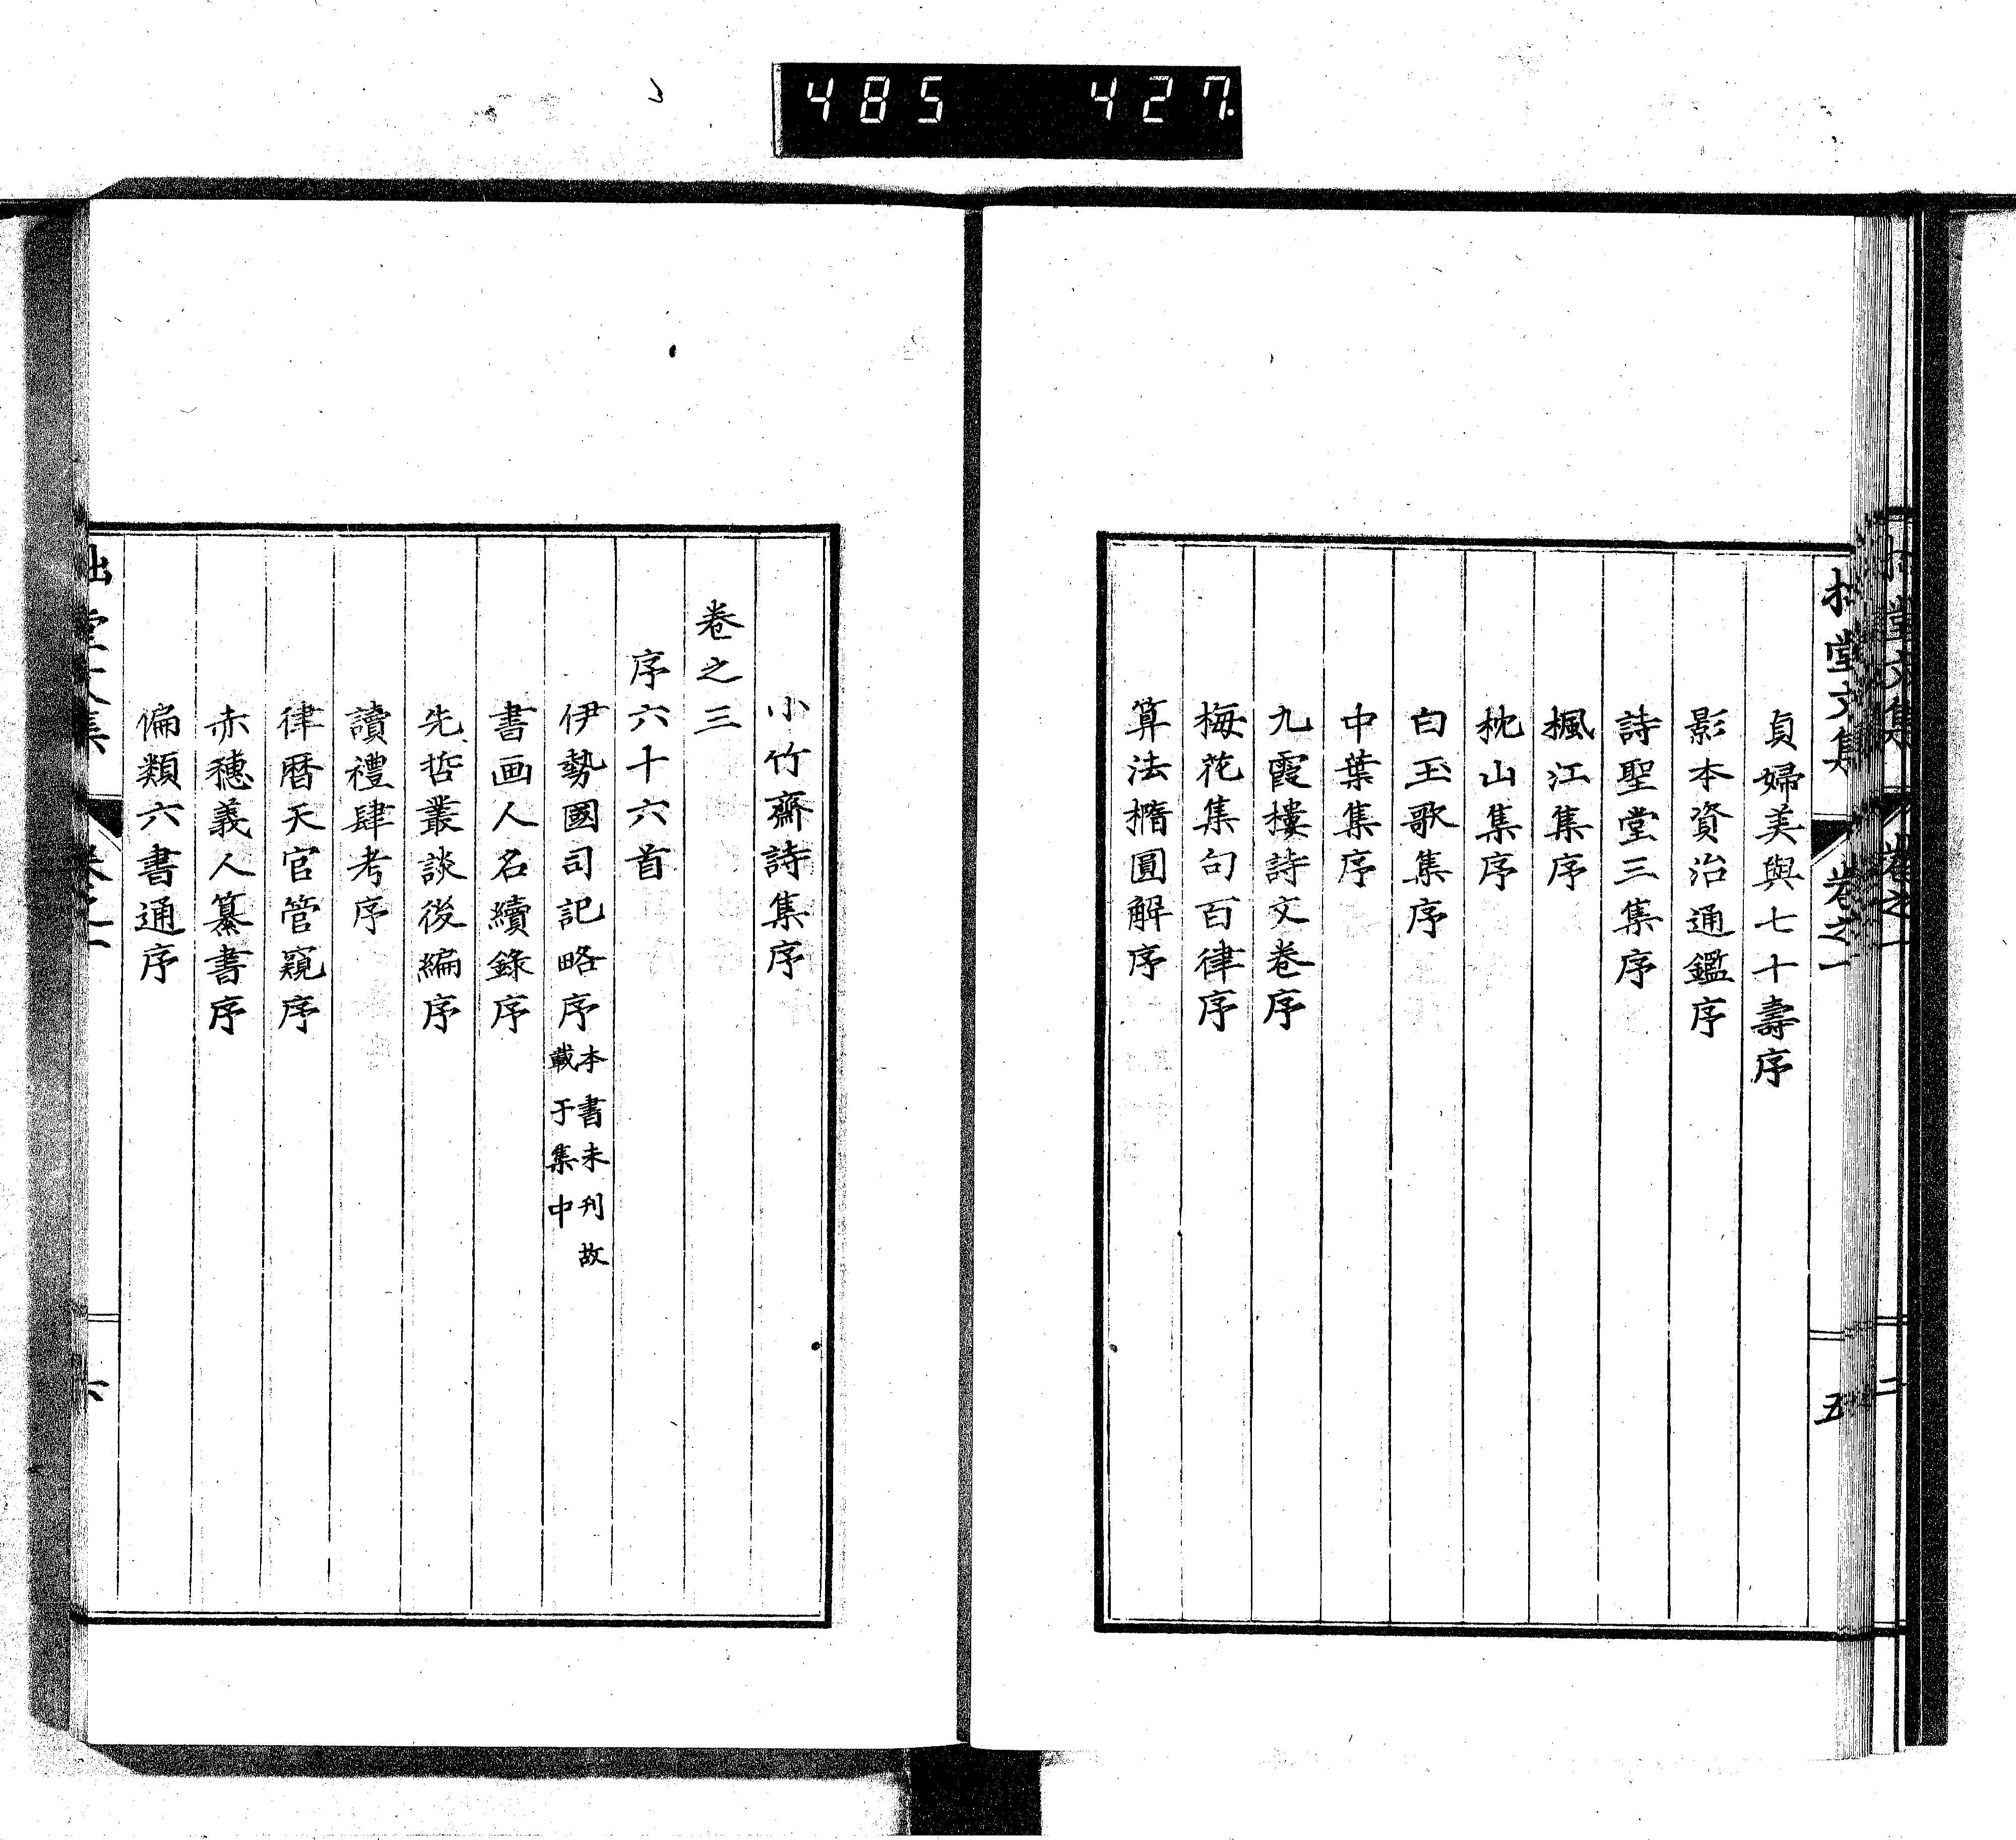 485 427
拙堂文集 卷之一 五
貞婦美與七十壽序
影本資治通鑑序
詩聖堂三集序
楓江集序
枕山集序
白玉歌集序
中葉集序
九霞樓詩文卷序
梅花集句百律序
算法橢圓解序
小竹齋詩集序
卷之三
序六十六首
伊勢國司記略序本書未刊故載于集中
書画人名續錄序
先哲叢談後編序
讀禮肆考序
律暦天官管窺序
赤穗義人纂書序
偏類六書通序